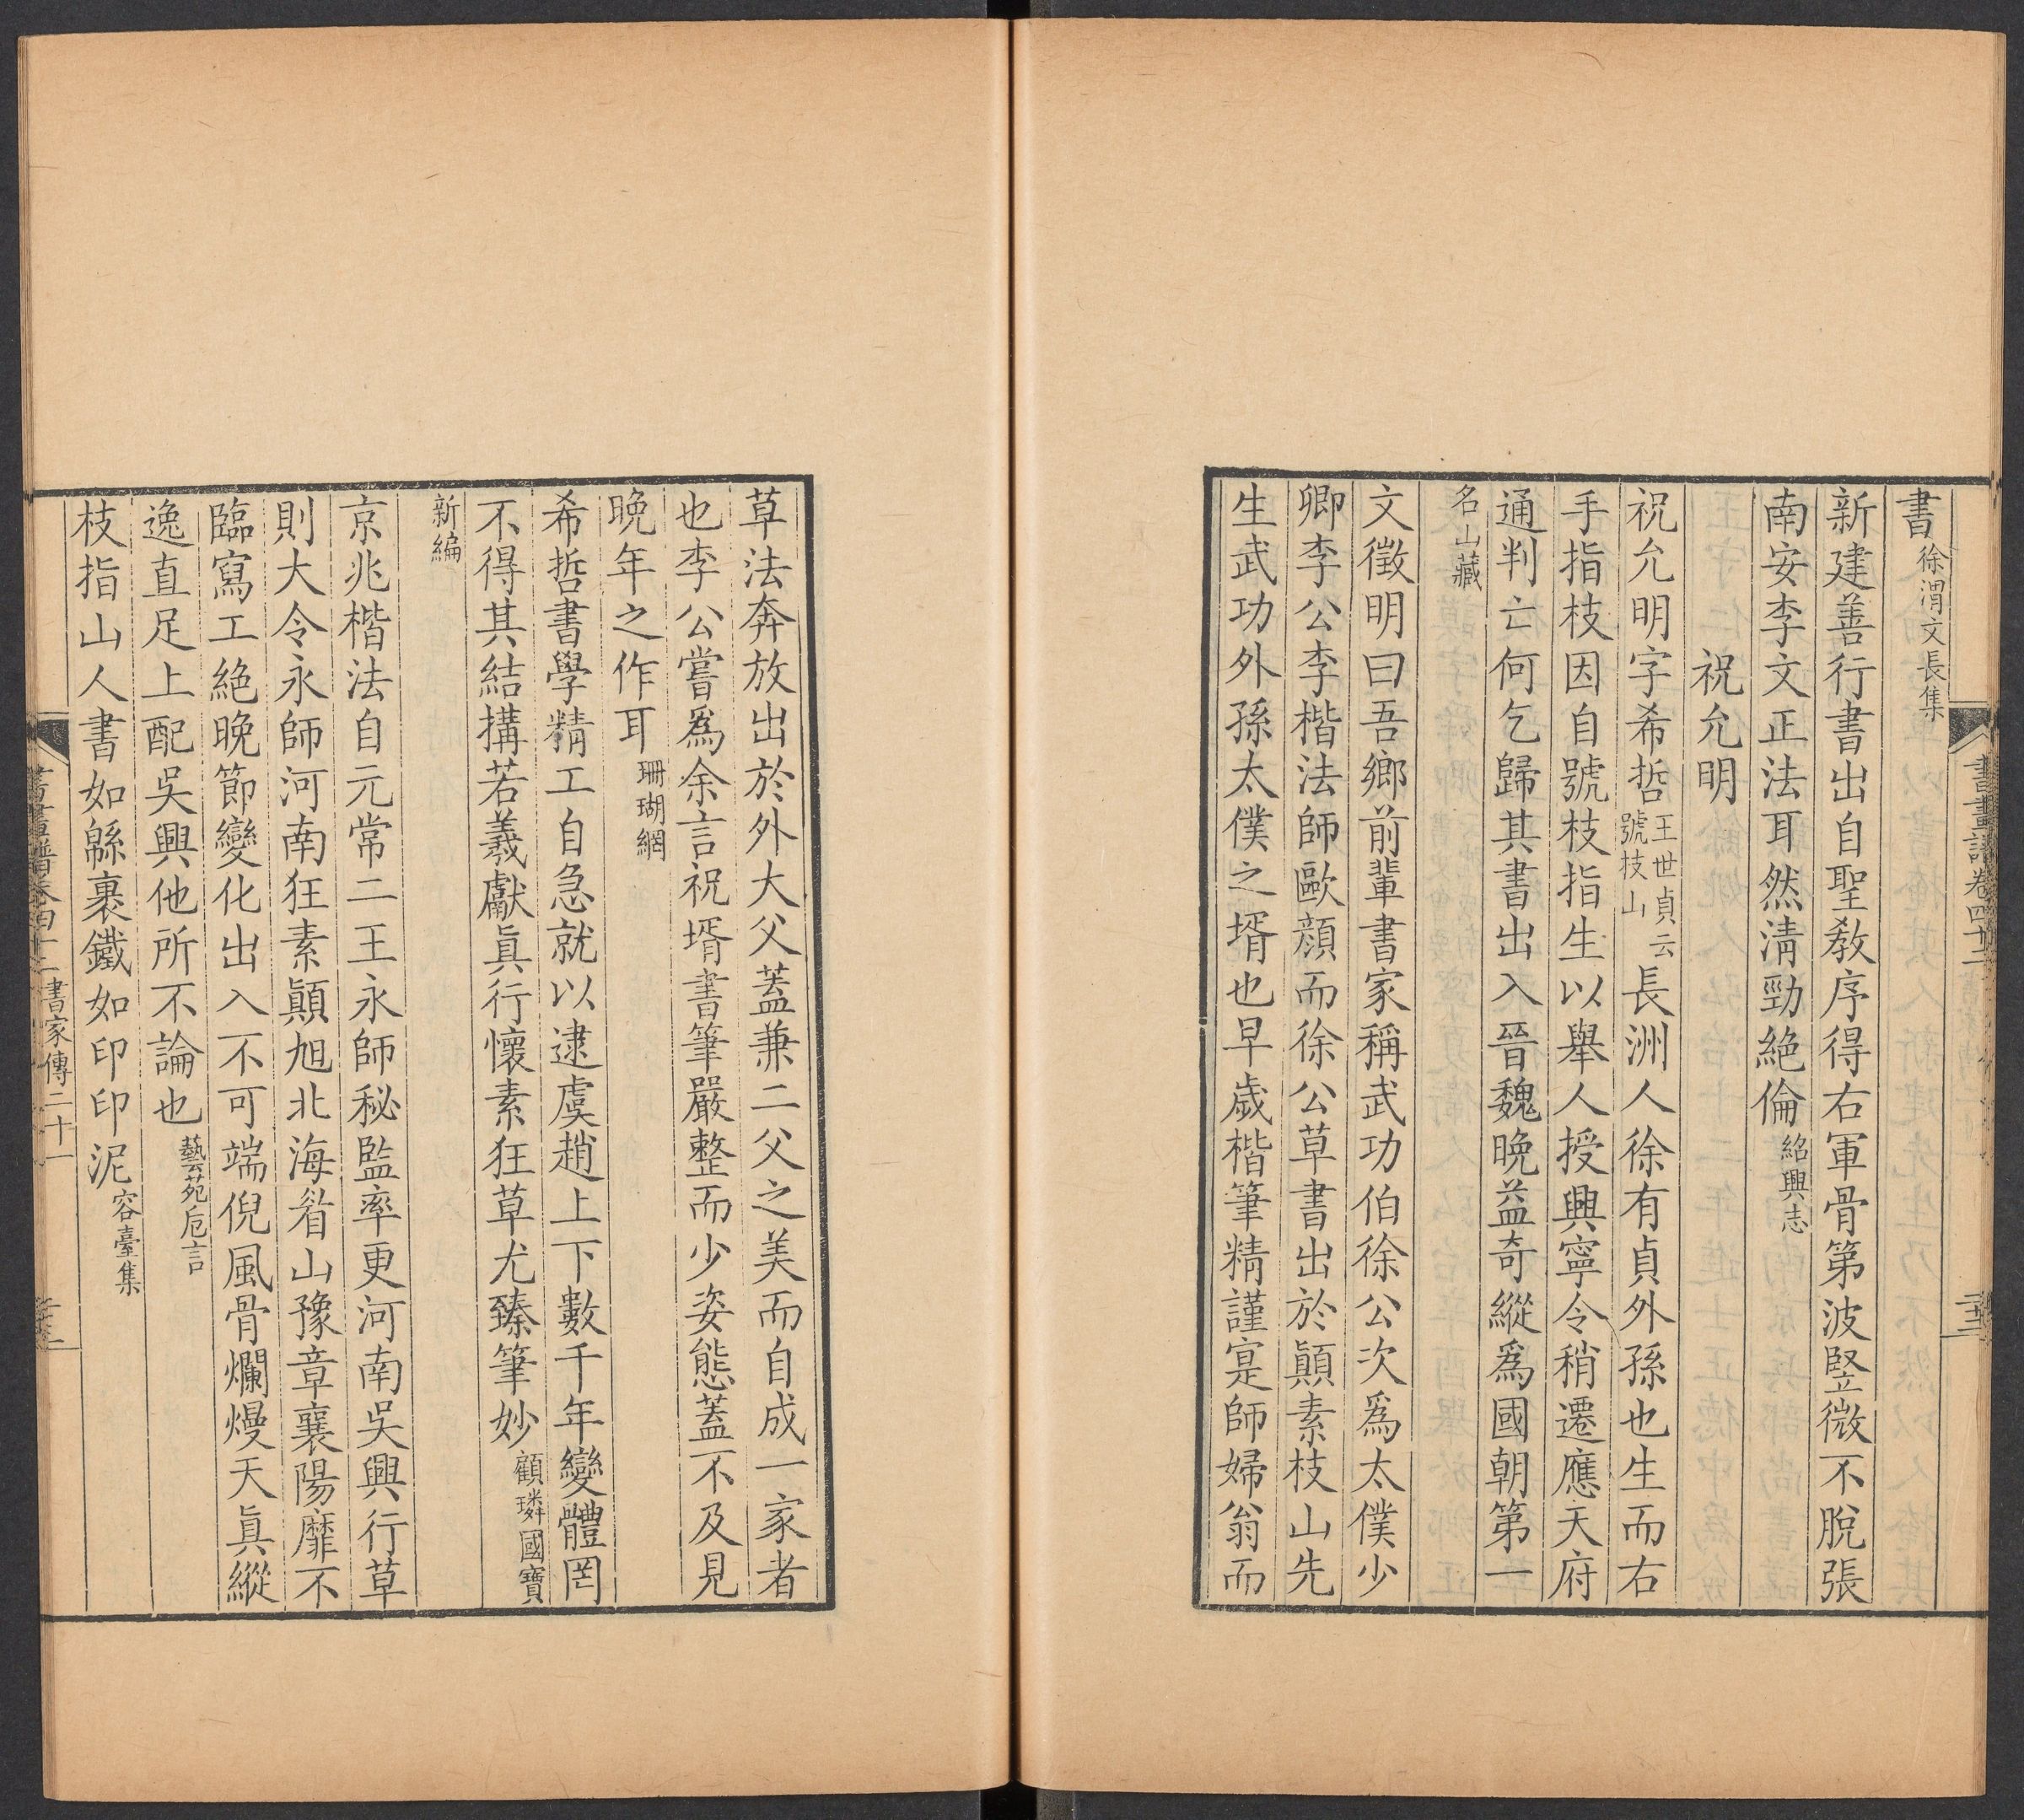 書徐渭文長集
新建善行書出自聖敎序得右軍骨第波竪微不脫張
南安李文正法耳然淸勁絶倫紹興志
祝允明
祝允明字希哲王世貞云號枝山長洲人徐有貞外孫也生而右
手指枝因自號枝指生以舉人授興寧令稍遷應天府
通判亡何乞歸其書出入晉魏晚益奇縱爲國朝第一
名山藏
文徵明曰吾鄉前輩書家稱武功伯徐公次爲太僕少
卿李公李楷法師歐顔而徐公草書出於顚素枝山先
生武功外孫太僕之壻也早歲楷筆精謹寔師婦翁而
草法奔放出於外大父蓋兼二父之美而自成一家者
也李公嘗爲余言祝壻書筆嚴整而少姿態蓋不及見
晚年之作耳珊瑚網
希哲書學精工自急就以逮虞趙上下數千年變體罔
不得其結搆若羲獻眞行懷素狂草尤臻筆妙顧璘國寶
新編
京兆楷法自元常二王永師秘監率更河南吳興行草
則大令永師河南狂素顚旭北海眉山豫章襄陽靡不
臨寫工絶晚節變化出入不可端倪風骨爛熳天眞縱
逸直足上配吳興他所不論也藝苑巵言
枝指山人書如緜裹鐵如印印泥容臺集
書畫譜卷四十二 書家傳二十一